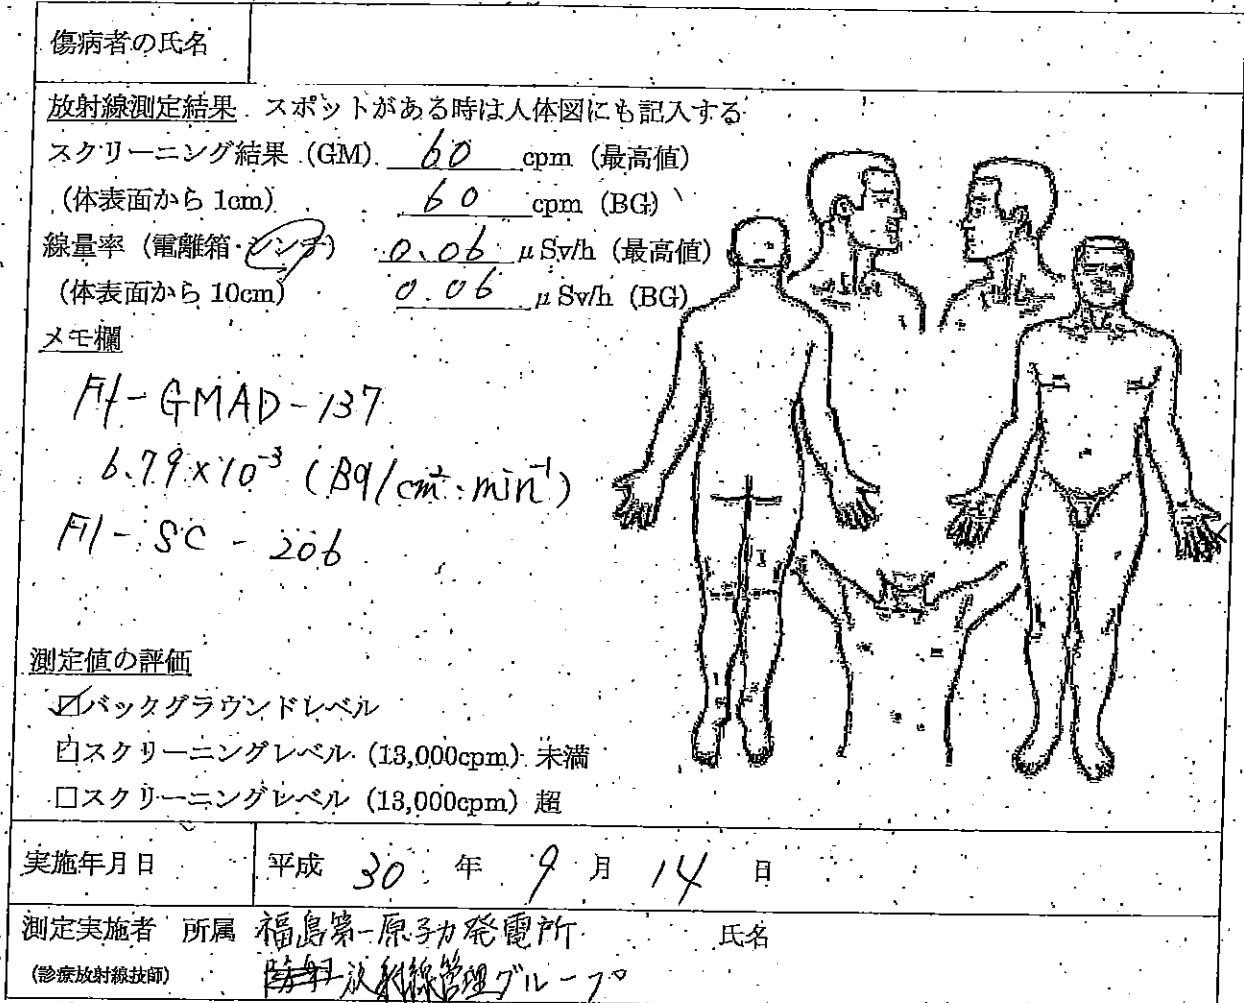 傷病者の氏名
放射線測定結果 スポットがある時は人体図にも記入する
スクリーニング結果 (GM) 60 cpm (最高値)
(体表面から 1cm) 60 cpm (BG)
線量率 (電離箱・シンチ) 0.06 μSv/h (最高値)
(体表面から 10cm) 0.06 μSv/h (BG)
メモ欄
F1-GMAD-137
6.79×10⁻³ (Bq/cm²・min⁻¹)
F1-SC-206
測定値の評価
☑バックグラウンドレベル
□スクリーニングレベル (13,000cpm) 未満
□スクリーニングレベル (13,000cpm) 超
実施年月日 平成 30 年 9 月 14 日
測定実施者 所属 福島第一原子力発電所 氏名
(診療放射線技師) 放射線管理グループ